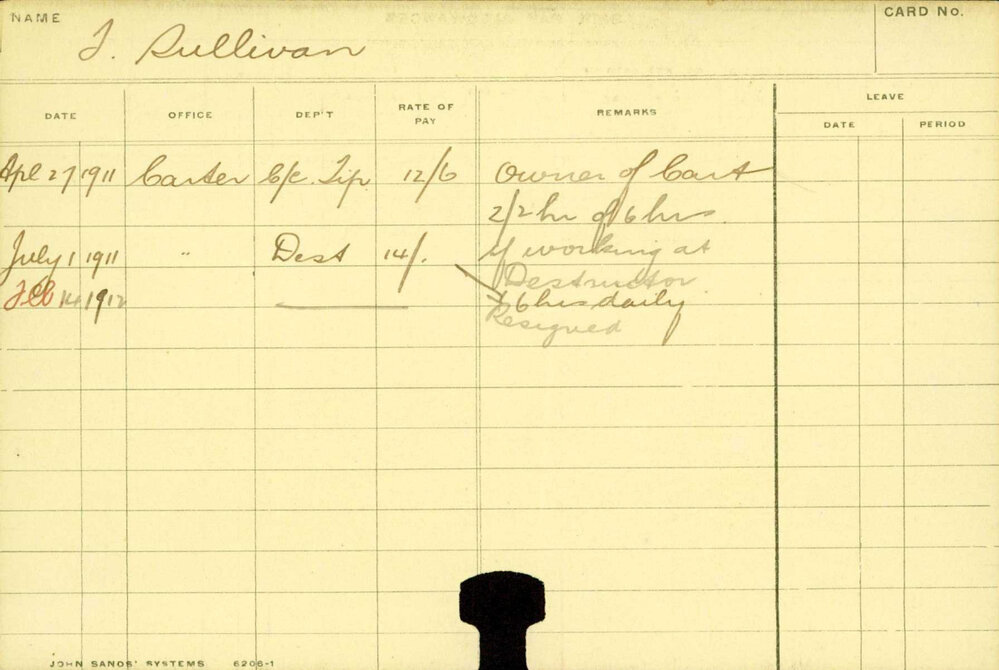 NAME
CARD No.
J. Sullivan
DATE OFFICE DEP'T RATE OF PAY REMARKS LEAVE
DATE PERIOD
Apl 27 1911 Carter C/C. Tip. 12/6 Owner of Cart
2/2 hr of 6 hrs.
July 1 1911 " Dest 14/. if working at
Destructor
Feb 14 1912 6 hrs daily
Resigned
JOHN SANDS' SYSTEMS 6206-1